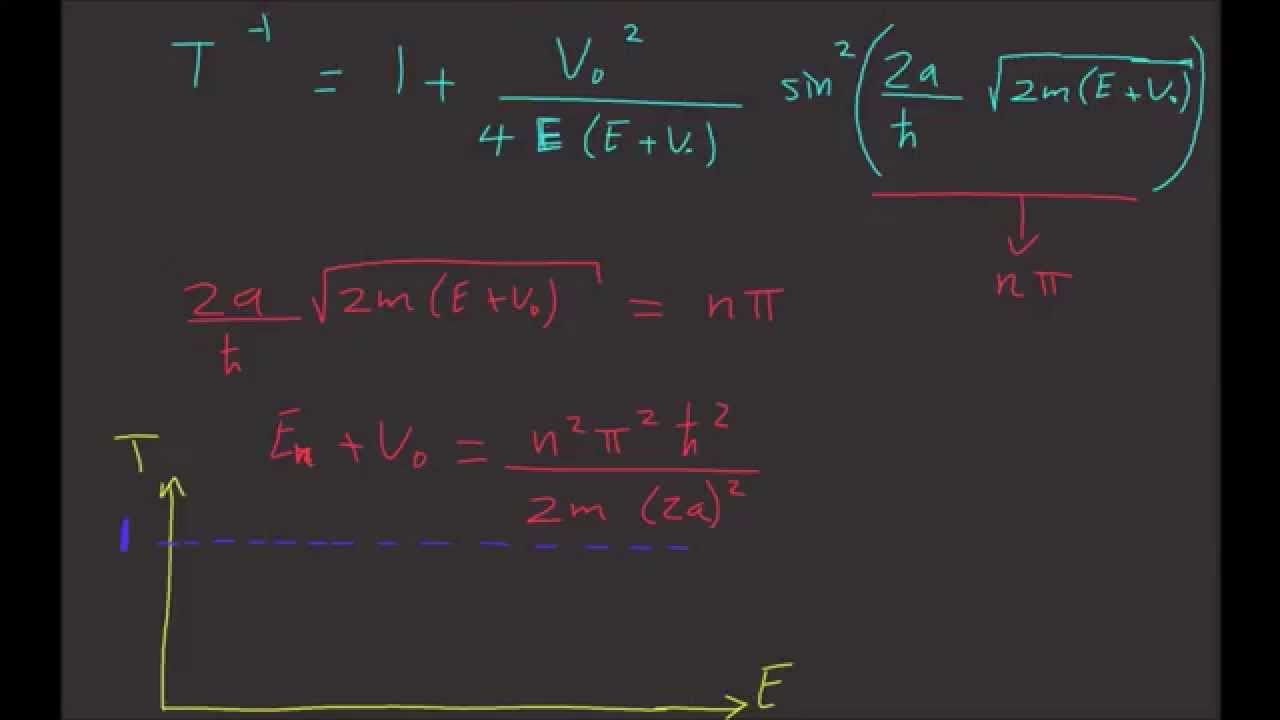 T⁻¹ = 1 + V₀² / 4E(E+V₀) sin²(2a/ħ √2m(E+V₀))
nπ
2a/ħ √2m(E+V₀) = nπ
Eₙ + V₀ = n²π²ħ² / 2m(2a)²
T
1
E